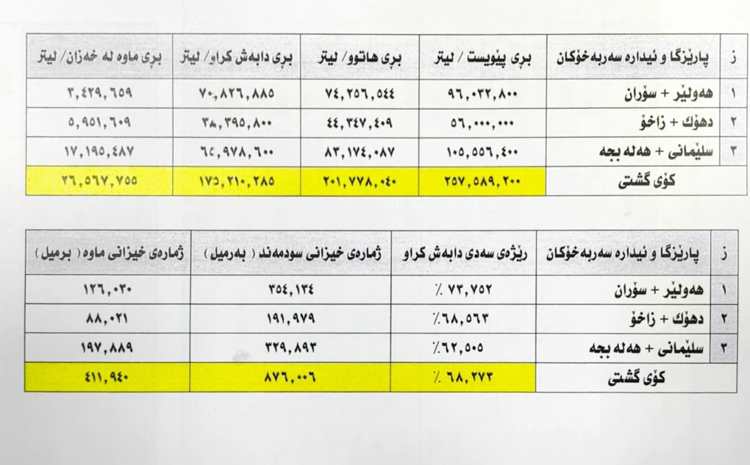 ز پارێزگا و ئیدارە سەربەخۆکان بڕی پێویست / لیتر بڕی هاتوو/ لیتر بڕی دابەش کراو/ لیتر بڕی ماوە لە خەزان/ لیتر
١ هەولێر + سۆران ٩٦,٠٣٢,٨٠٠ ٧٤,٢٥٦,٥٤٤ ٧٠,٨٢٦,٨٨٥ ٣,٤٢٩,٦٥٩
٢ دهۆك + زاخۆ ٥٦,٠٠٠,٠٠٠ ٤٤,٣٤٧,٤٠٩ ٣٨,٣٩٥,٨٠٠ ٥,٩٥١,٦٠٩
٣ سلێمانی + هەلەبجە ١٠٥,٥٥٦,٤٠٠ ٨٣,١٧٤,٠٨٧ ٦٥,٩٧٨,٦٠٠ ١٧,١٩٥,٤٨٧
کۆی گشتی ٢٥٧,٥٨٩,٢٠٠ ٢٠١,٧٧٨,٠٤٠ ١٧٥,٢١٠,٢٨٥ ٢٦,٥٦٧,٧٥٥
ز پارێزگا و ئیدارە سەربەخۆکان رێژەی سەدی دابەش کراو ژمارەی خیزانی سودمەند ( بەرمیل ) ژمارەی خیزانی ماوە ( برمیل )
١ هەولێر + سۆران ٧٣,٧٥٢ ٪ ٣٥٤,١٣٤ ١٢٦,٠٣٠
٢ دهۆك + زاخۆ ٦٨,٥٦٣ ٪ ١٩١,٩٧٩ ٨٨,٠٢١
٣ سلێمانی + هەلەبجە ٦٢,٥٠٥ ٪ ٣٢٩,٨٩٣ ١٩٧,٨٨٩
کۆی گشتی ٦٨,٢٧٣ ٪ ٨٧٦,٠٠٦ ٤١١,٩٤٠